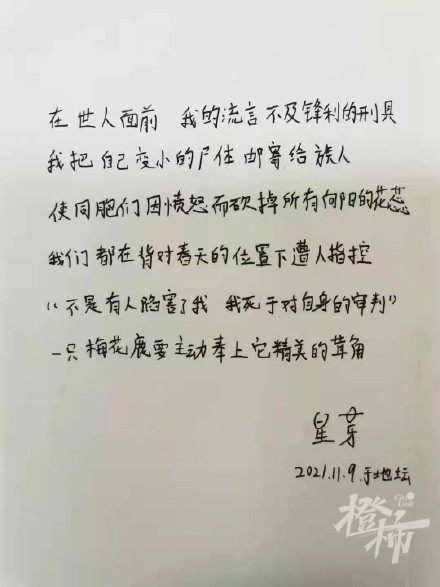 在世人面前 我的流言不及锋利的刑具
我把自己变小的尸体邮寄给族人
使同胞们因愤怒而砍掉所有向阳的花蕊
我们都在背对春天的位置下遭人指控
“不是有人陷害了我 我死于对自身的审判”
一只梅花鹿要主动奉上它精美的茸角
星芽
2021.11.9.于地坛
City Link
橙柿